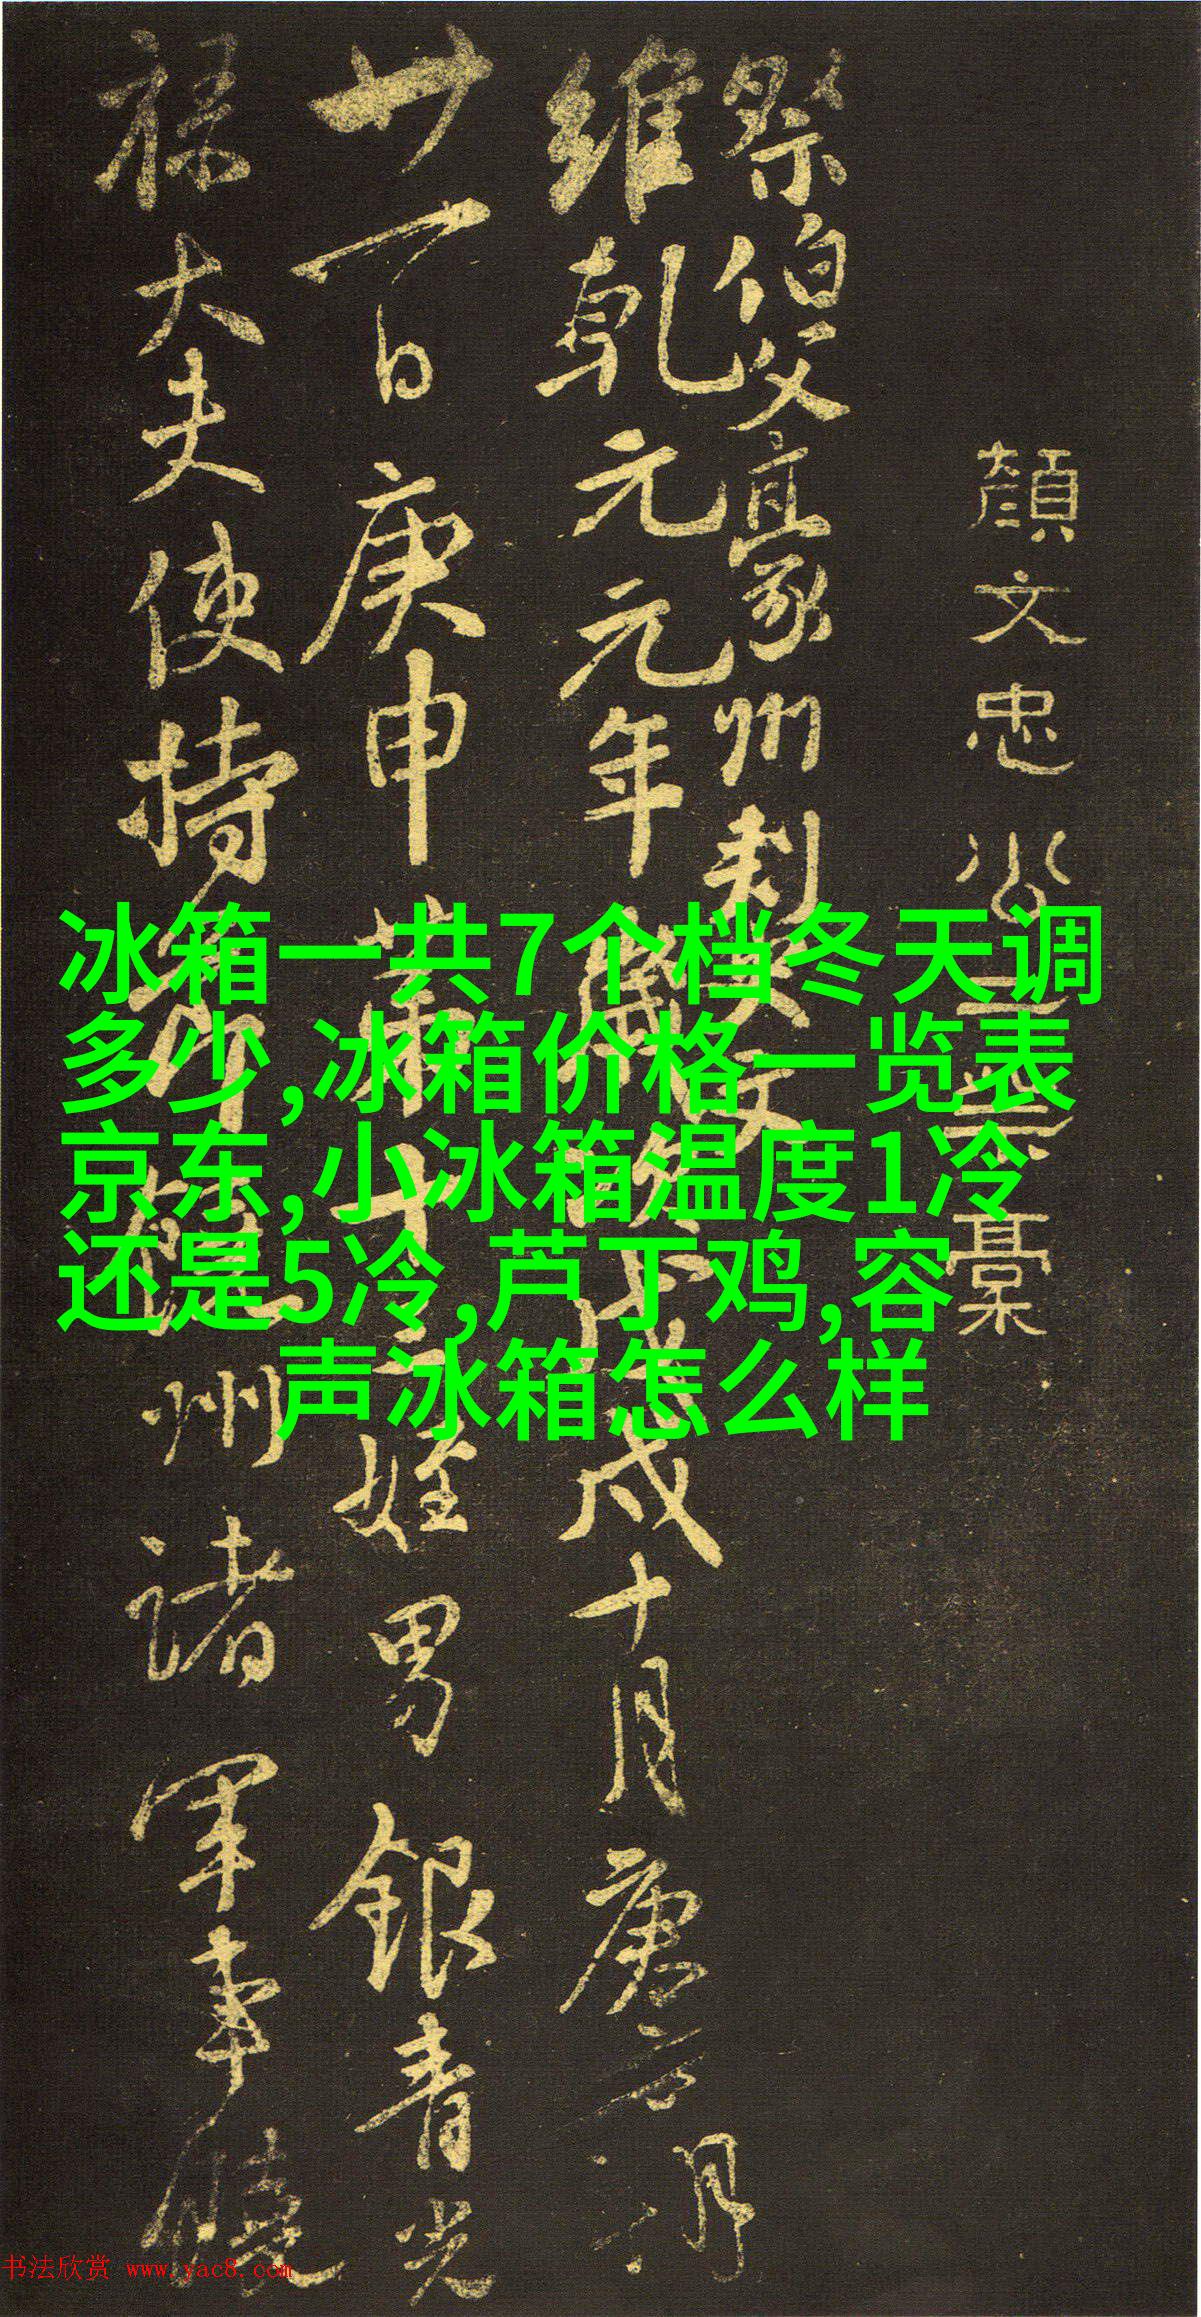 顏文忠公三祭稾
祭伯父豪州刺史文
維乾元元年歲次戊戌十月庚寅朔
廿一日庚申第十三姪男銀青光
祿大夫使持節饒州諸軍事饒
冰箱一共7个档冬天调
多少,冰箱价格一览表
京东,小冰箱温度1冷
还是5冷,芦丁鸡,容
声冰箱怎么样
书法欣赏 www.yac8.com